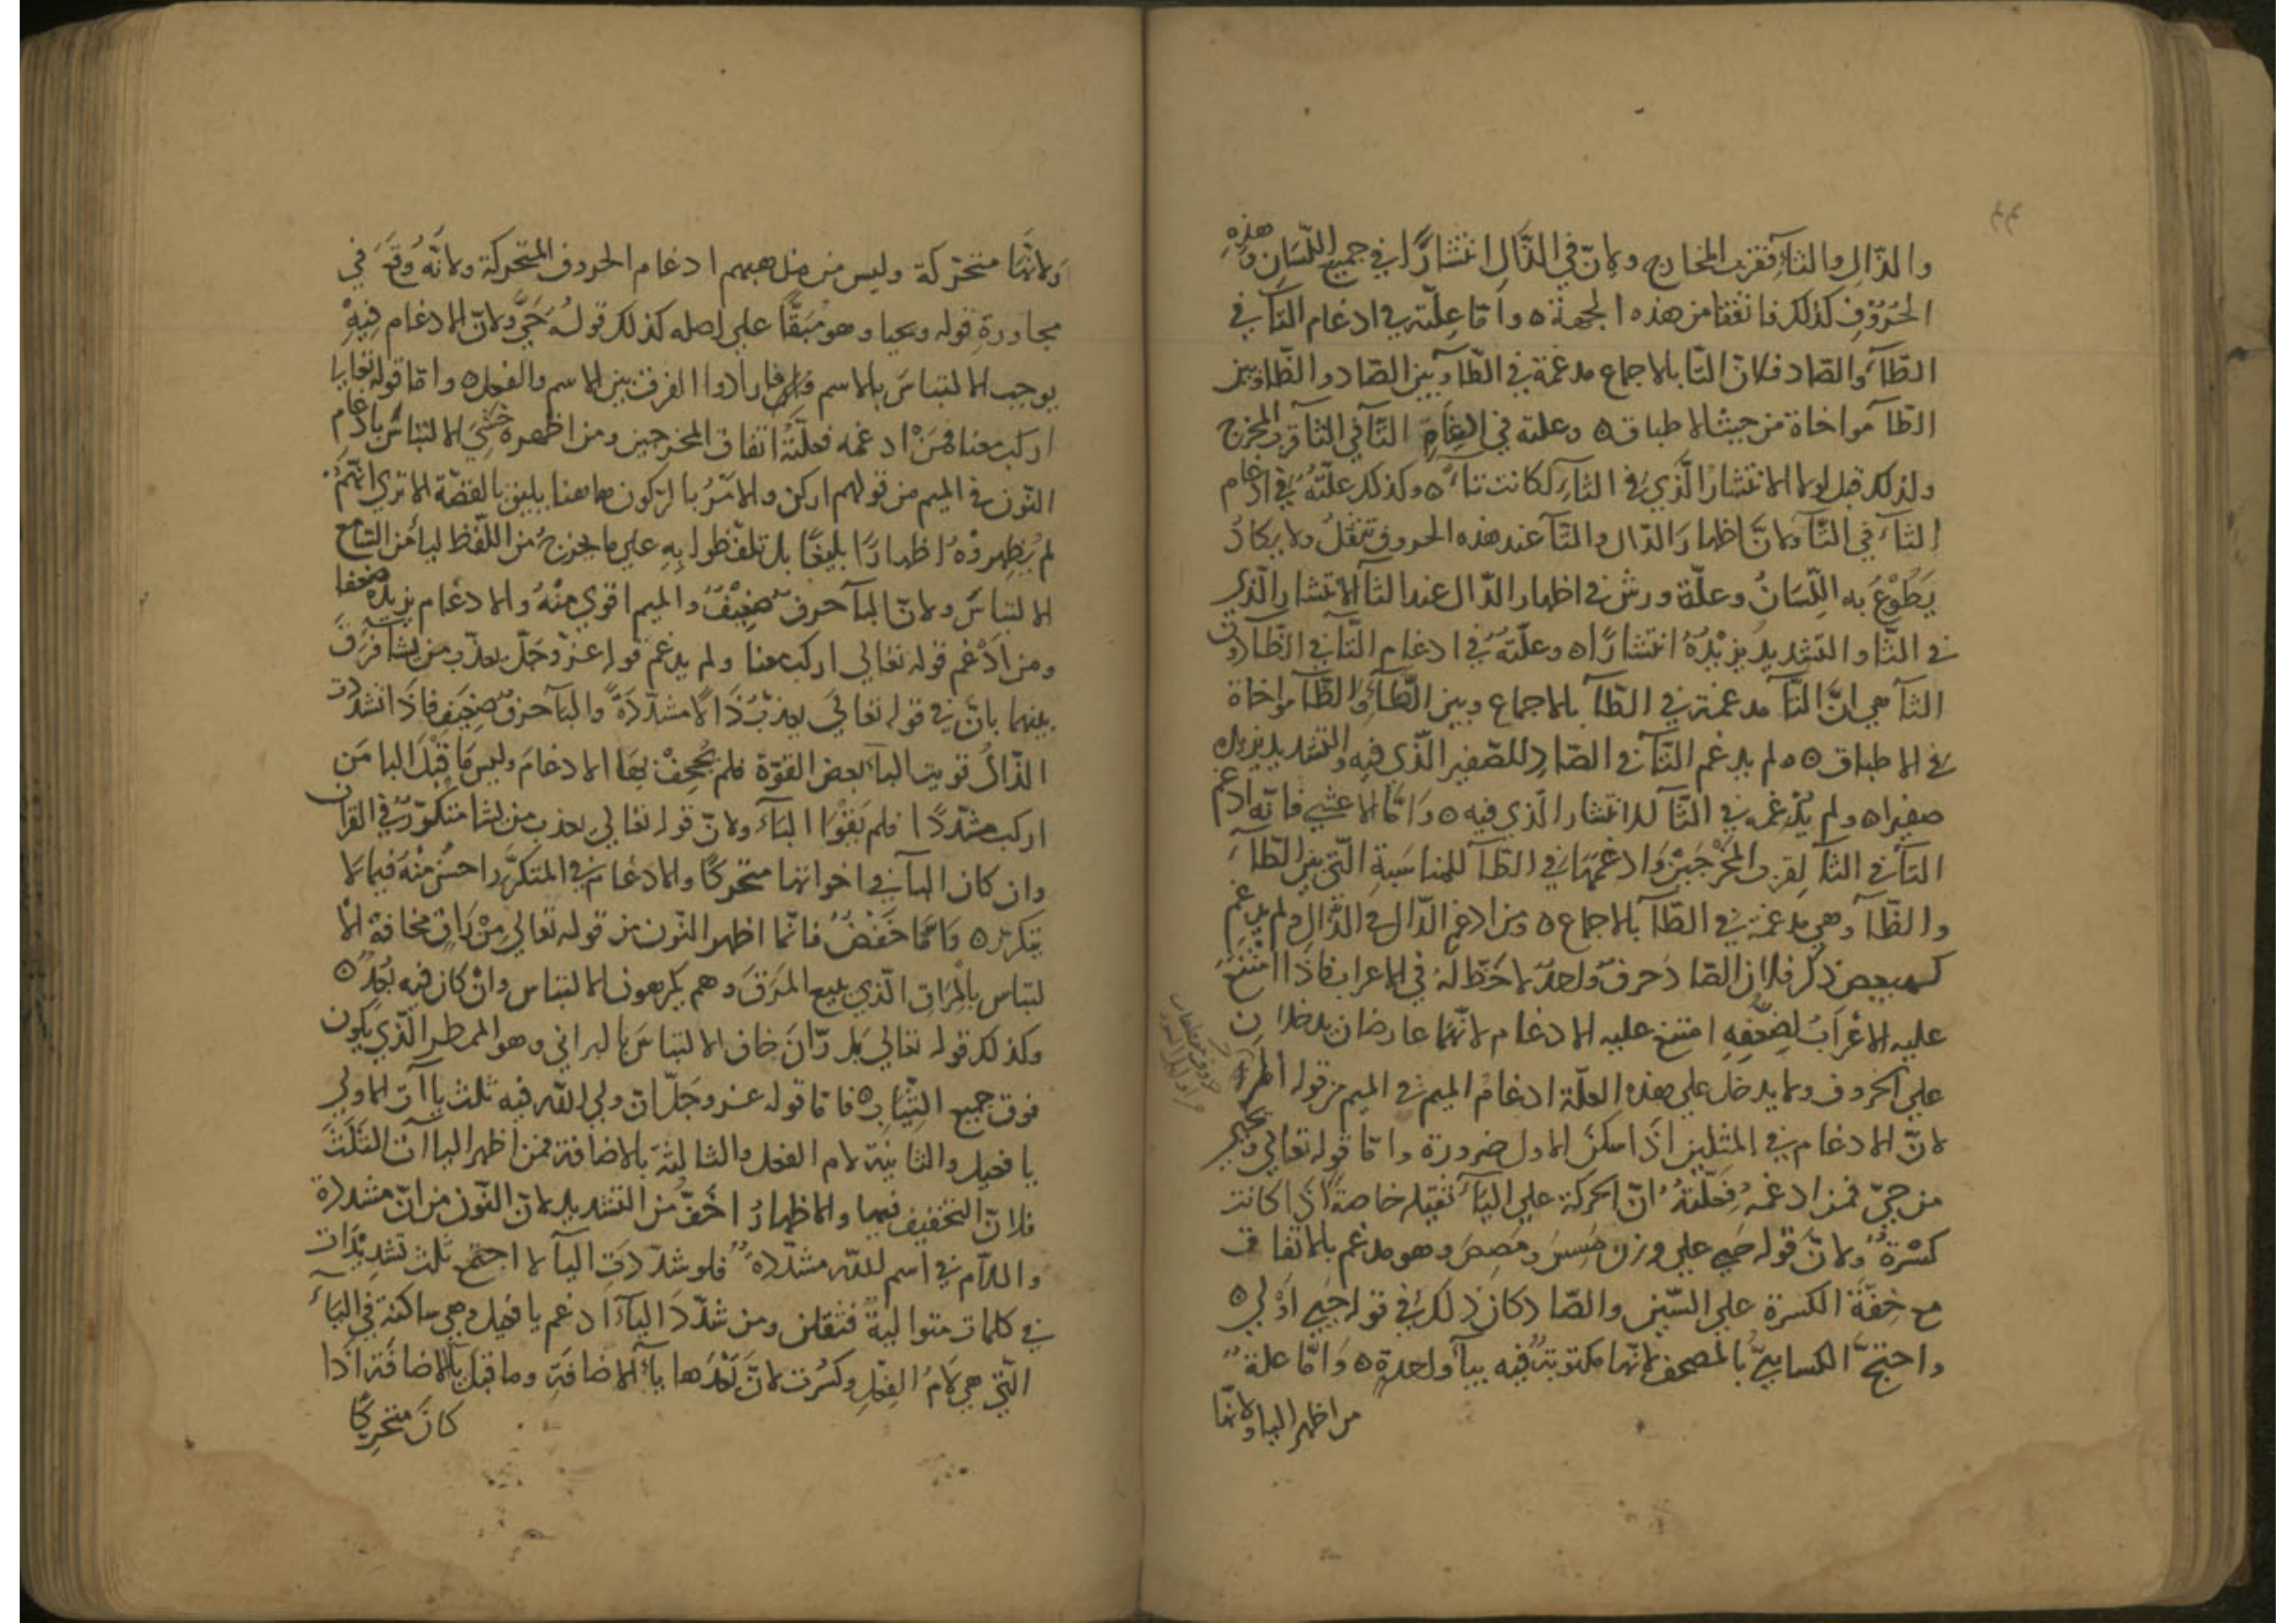 والذّالِ والثآءِ فقرب المخارج ولانّ في الذّالِ انتشارًا في جميع اللّسَانِ وهذه
الحُرُوفِ كذلك فاتفقا من هذه الجهة ٥ وامّا علّته في ادغام التآ في
الظآءِ والصّاد فلانّ التّا بالاجماع مدغمة في الطّآ وبين الصّاد والظّا وبين
الطّآ مواخاة من حيث الاطباق ٥ وعلته في ادغام التّآ في الثآ قرب المخرج
ولذلك قيل لولا الانتشارُ الَّذي في الثآءِ لكانت تآءً ٥ وكذلك علّتهُ في ادغام
الثآءِ في التّآ ولانَّ اظهارَ الدّال والتّآ عند هذه الحروف تثقلُ ولا يكادُ
يَطُوْعُ به اللّسَانُ وعلّة ورش في اظهار الدّال عند الثآ الانتشار الّذي
في الثّا والتشديد يزيْدُهُ انتشارًا ٥ وعلّتهُ في ادغام التّآ في الظّا دون
الثآ هي انَّ التّآ مدغمة في الطّآ بالاجماع وبين الطّآءِ والظّآ مواخاة
في الاطباق ٥ ولم يدغم التّآ في الصّادِ للصّفير الّذي فيه والتشديد يزيده
صفيرا ٥ ولم يُدغمه في الثّآ للانتشار الّذي فيه ٥ وَامّا الاعشي فانّه ادغم
التآ في الثآ لِقرب المَخْرَجَيْن وَادغمهَا في الظّآ للمناسَبةِ الّتي بين الطّآءِ
والظّآ وهي مدغمة في الطّآ بالاجماع ٥ ومن ادغم الدّال في الذّالِ ولم يدغم
كهيعص ذكر فلان الصّاد حَرفٌ واحدٌ لا حَظّ لهُ في الاعراب فاذا امْتَنَعَ
عليه الاعْرَابُ لِضعْفِهِ امتنع عليه الادغام لانّهما عارضان يدخلان
علي الحروف ولا يدخل علي هذه العلّة ادغامُ الميم في الميم من قوله الٓمٓ
لانّ الادغام في المثلين اذَا سكنَ الاول ضرورة وامّا قوله تعالي ويحيي
من حيّ فمن ادغمهُ فعِلّتهُ انّ الحركة علي اليآءِ ثقيله خاصةً اذا كانت
كسْرةً ولانّ قوله حَيِي علي وزن مَسِسَ ومَصِصَ وهو مدغم بالاتفاق
مع خِفّةِ الكسرة علي السّين والصّاد كان ذلك في قوله حَيِي اَوْلي ٥
واحتجَّ الكسائيُّ بالمصحف لانّها مكتوبة فيه بيآ واحدةٍ ٥ وَامّا علة
من اظهر اليا ولانّها
وَلانّها متحرّكة وليس من مذهبهم ادغام الحروف المتحركة ولانّهُ وُقعَ في
مجاورةِ قوله ويحيا وهو مُبَقًّا علي اصله كذلك قولُه حَيَّ ولانّ الادغام فيْهِ
يوجب الالتباسَ بالاسم فارادوا الفرق بين الاسم والفعل ٥ وامّا قوله تعالي يا
اركب معنا فمَنْ ادغمه فعلّتُهُ اتفاق المخرجين ومن اظهره خَشِيَ الالتباسَ بادغام
النّون في الميم من قولهم اركن والامرُ بالركون هاهنا يليق بالقصّة الا تري انّهمُ
لم يُظهِروْهُ اظهارًا بليغًا بل تلفّظوا بِهِ علي ما يخرجُ من اللّفظ ليأمَن السّامع
الالتباسَ ولانّ البآ حرفٌ ضعِيْفٌ والميم اقوي مِنْهُ والادغام يزيده ضعفا
ومن اَدْغم قوله تعالي اركب معنا ولم يدغم قوله عزّ وجَلّ يعذّب من يشآ فَرَّقَ
بينهما بانّ في قوله تعالَي يعذّبُ ذَالًا مشدّدَةً والبآ حرفٌ ضعِيْفٌ فاذَا تشددت
الذّالُ قويت البآءُ بعض القوّة فلم يُجحِفْ بهَا الادغامَ وليس مَا قَبْلَ البا مَن
اركب مشدّدًا فلم يَقْوَا البآءُ ولانّ قوله تعالي يعذب من يشا متكَرّرٌ في القرآن
وان كان البآ في اخواتها متحركًا والادغام في المتكرّر احسنُ منْهُ فيما لا
يتكرر ٥ وَامّا حَفْصٌ فانّما اظهر النّون من قوله تعالي مِنْ رَاقٍ مخافة الا
لتباس بالمرَاقِ الّذي يبيع المَرَقَ وهم يكرهون الالتباس وانْ كان فيه بُعْدٌ ٥
وكذلك قوله تعالي بَل رّانَ خاف الالتباسَ بالبراني وهو الممطر الّذي يكون
فوق جميع الثيَابِ ٥ فامّا قوله عزّ وجَلّ انّ وليّ اللّه فيه ثلث ياآت الاولي
يا فعيل والثانية لام الفعل والثالثَة بالاضافة فمن اظهر الياآت الثلثَ
فلانّ التخفيف فيها والاظهارُ اخَفّ من التشديد لانّ النّون من انّ مشدّدة
واللّام في اسم اللّه مشدّدة فلو شدّدَتِ اليآ لاجتمع ثلث تشدِيْدَات
في كلمات متواليةً فتثقلن ومن شدّدَ اليآءَ ادغم يا فعيل وهي ساكنة في اليآءِ
التّي هي لامُ الفعلِ وكسُرت لانَّ بَعْدَها يآءُ الاضافَةِ وما قبل يآ الاضافَة اذا
كانَ متحرِكًا